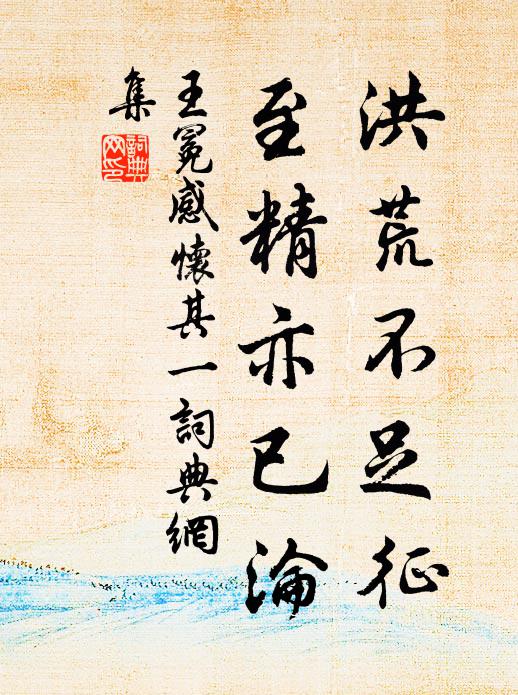 洪荒不足征
至精亦已淪
王冕感懷其一詞典網
集
詞典網印